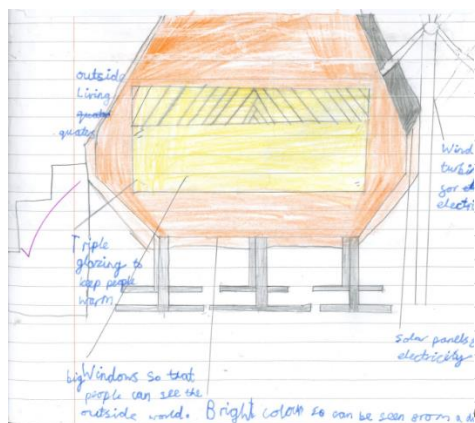 outside
Living
quates
Wind
turbin
for el
electri
Triple
glazing to
keep people
warm
solar panels
electricity
big Windows so that
people can see the
outside world. Bright colour so can be seen from a